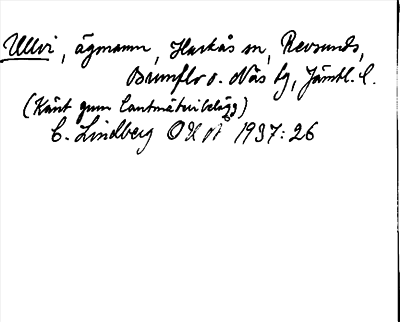 Ullvi, ägonamn, Hackås sn, Revsunds,
Brunflo o. Näs tg, Jämtl. l.
(Känt genom lantmäteribelägg)
C. Lindberg OUÅ 1937:26